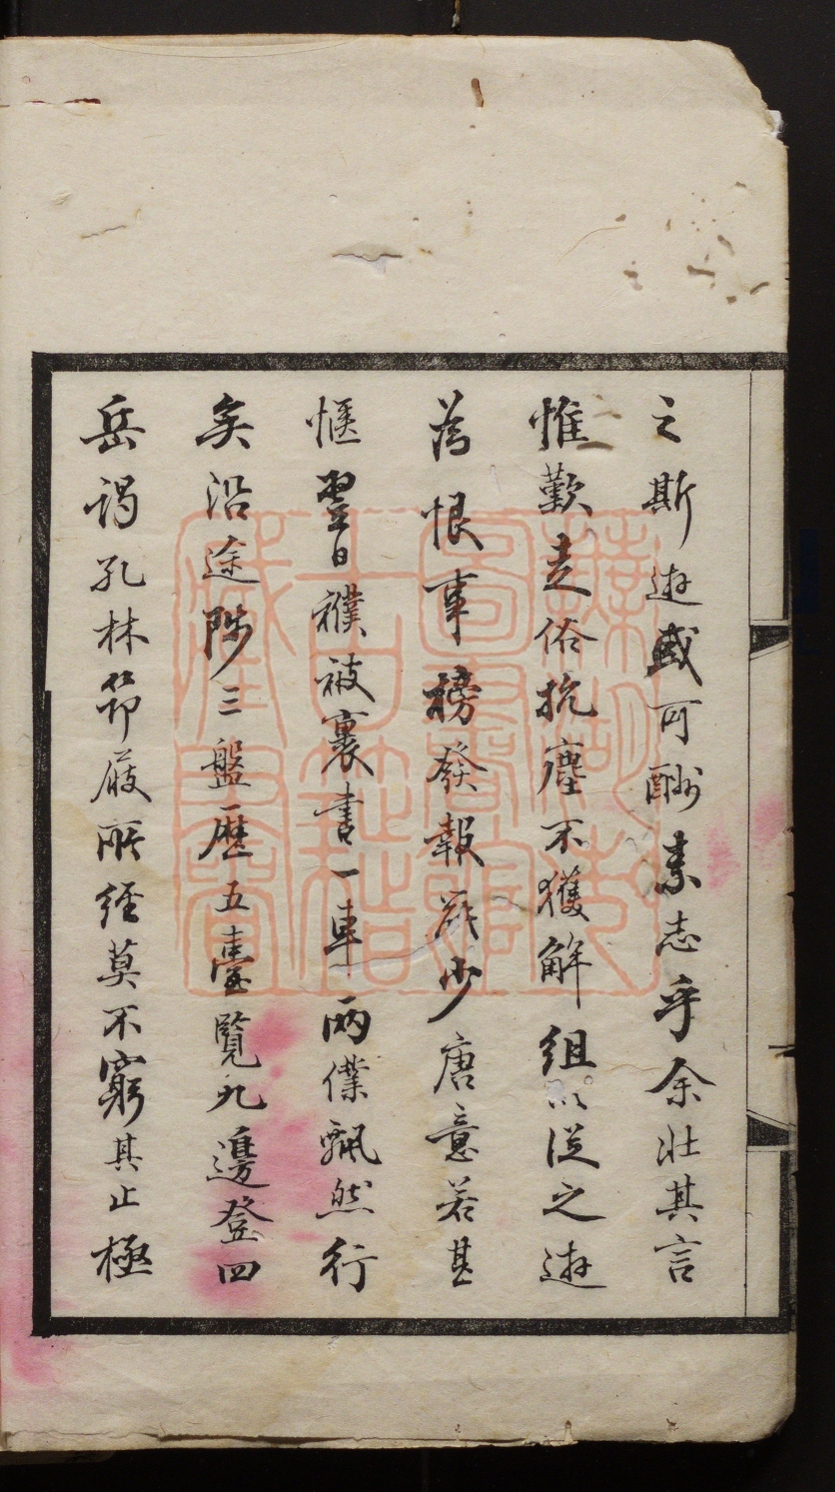 之斯遊或可酬素志乎余壯其言
惟歎走俗抗塵不獲解組以從之遊
為恨事榜發報罷少唐意若甚
愜翌日襆被裹書一車兩僕飄然行
矣沿途陟三盤歷五臺覽九邊登四
岳謁孔林筇屐所經莫不窮其止極